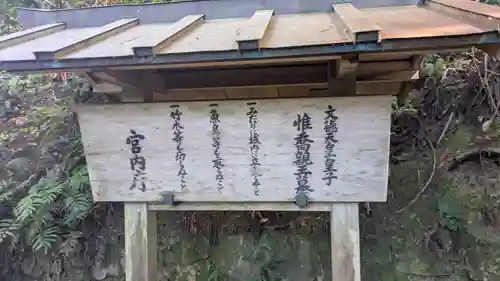 文徳天皇皇子
惟喬親王墓
一みだりに域内に立ち入らぬこと
一魚鳥等を取らぬこと
一竹木等を切らぬこと
宮内庁